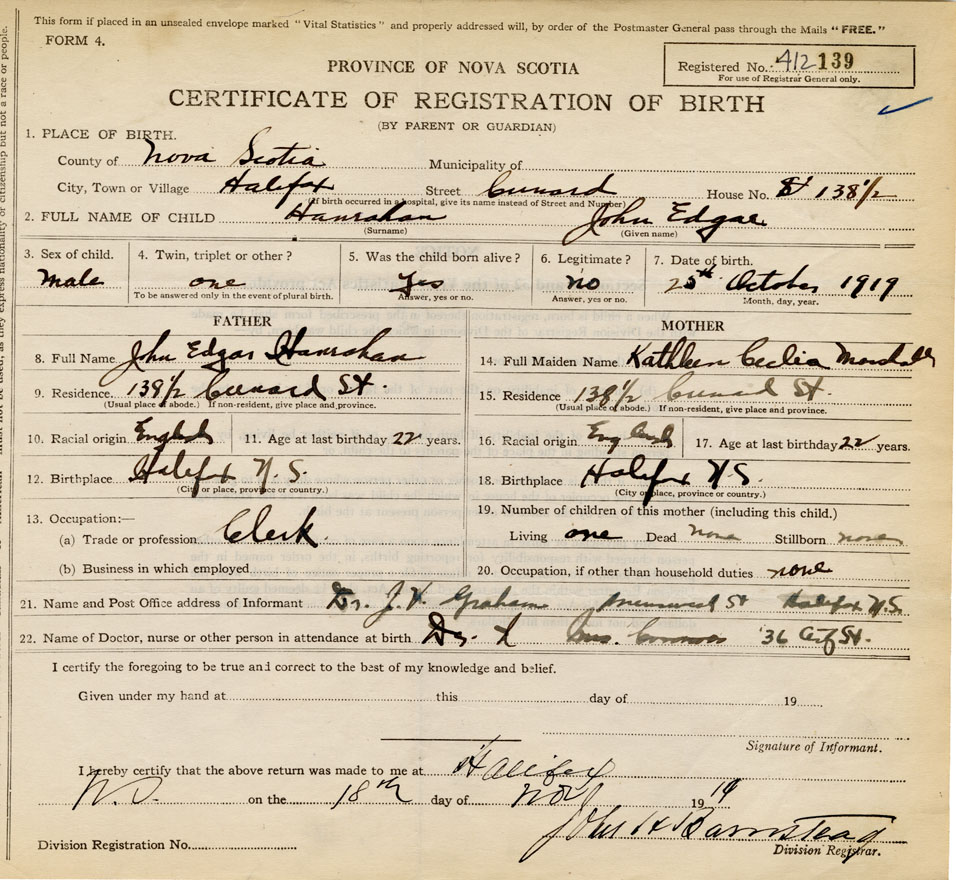 This form if placed in an unsealed envelope marked "Vital Statistics" and properly addressed will, by order of the Postmaster General pass through the Mails "FREE."
FORM 4.
Registered No.: 412139
For use of Registrar General only.
PROVINCE OF NOVA SCOTIA
CERTIFICATE OF REGISTRATION OF BIRTH
(BY PARENT OR GUARDIAN)
1. PLACE OF BIRTH.
County of Nova Scotia Municipality of
City, Town or Village Halifax Street Cunard House No. 138 1/2
(If birth occurred in a hospital, give its name instead of Street and Number)
2. FULL NAME OF CHILD Hanrahan John Edgar
(Surname) (Given name)
3. Sex of child. 4. Twin, triplet or other? 5. Was the child born alive? 6. Legitimate? 7. Date of birth.
male one Yes no 25th October 1919
To be answered only in the event of plural birth. Answer, yes or no. Answer, yes or no. Month, day, year.
FATHER MOTHER
8. Full Name John Edgar Hanrahan 14. Full Maiden Name Kathleen Cecilia Marshall
9. Residence 138 1/2 Cunard St. 15. Residence 138 1/2 Cunard St.
(Usual place of abode.) If non-resident, give place and province. (Usual place of abode.) If non-resident, give place and province.
10. Racial origin English 11. Age at last birthday 22 years. 16. Racial origin English 17. Age at last birthday 22 years.
12. Birthplace Halifax N.S. 18. Birthplace Halifax N.S.
(City or place, province or country.) (City or place, province or country.)
13. Occupation:— 19. Number of children of this mother (including this child.)
(a) Trade or profession Clerk. Living one Dead none Stillborn none
(b) Business in which employed 20. Occupation, if other than household duties none
21. Name and Post Office address of Informant Dr. J. Graham Brunswick St Halifax N.S.
22. Name of Doctor, nurse or other person in attendance at birth Dr. Mrs. 36 St.
I certify the foregoing to be true and correct to the best of my knowledge and belief.
Given under my hand at this day of 19
Signature of Informant.
I hereby certify that the above return was made to me at Halifax
N.S. on the 18th day of Nov 1919
John H Barnstead
Division Registration No. Division Registrar.